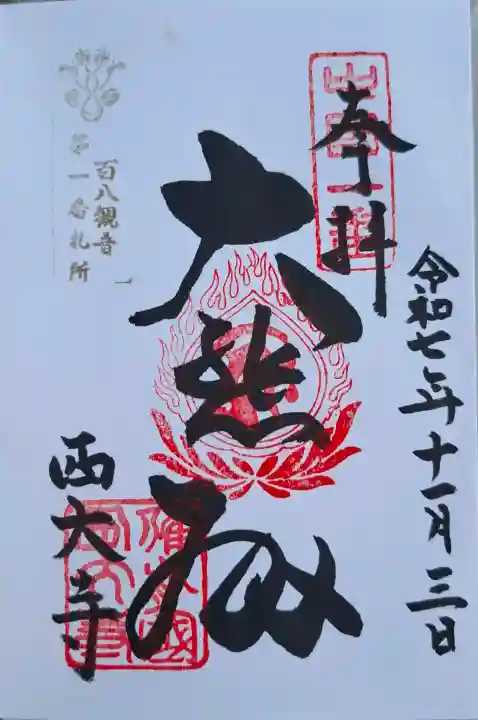 奉拝
令和七年十一月三日
大悲殿
西大寺
百八観音
第一番札所